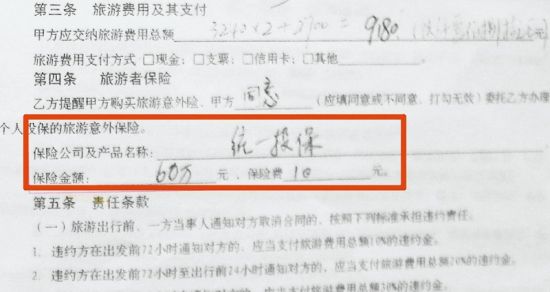 第三条 旅游费用及其支付
甲方应交纳旅游费用总额 3240×2+2700= 9180
旅游费用支付方式 □现金; □支票; □信用卡; □其他
第四条 旅游者保险
乙方提醒甲方购买旅游意外险、甲方 同意 (应填同意或不同意、打勾无效) 委托乙方办理
个人投保的旅游意外保险。
保险公司及产品名称: 统一投保
保险金额: 60万 元, 保险费 10 元。
第五条 责任条款
(一) 旅游出行前、一方当事人通知对方取消合同的、按照下列标准承担违约责任。
1. 违约方在出发前72小时通知对方的、应当支付旅游费用总额10%的违约金。
2. 违约方在出发前72小时至出行前24小时通知对方的、应当支付旅游费用总额20%的违约金。